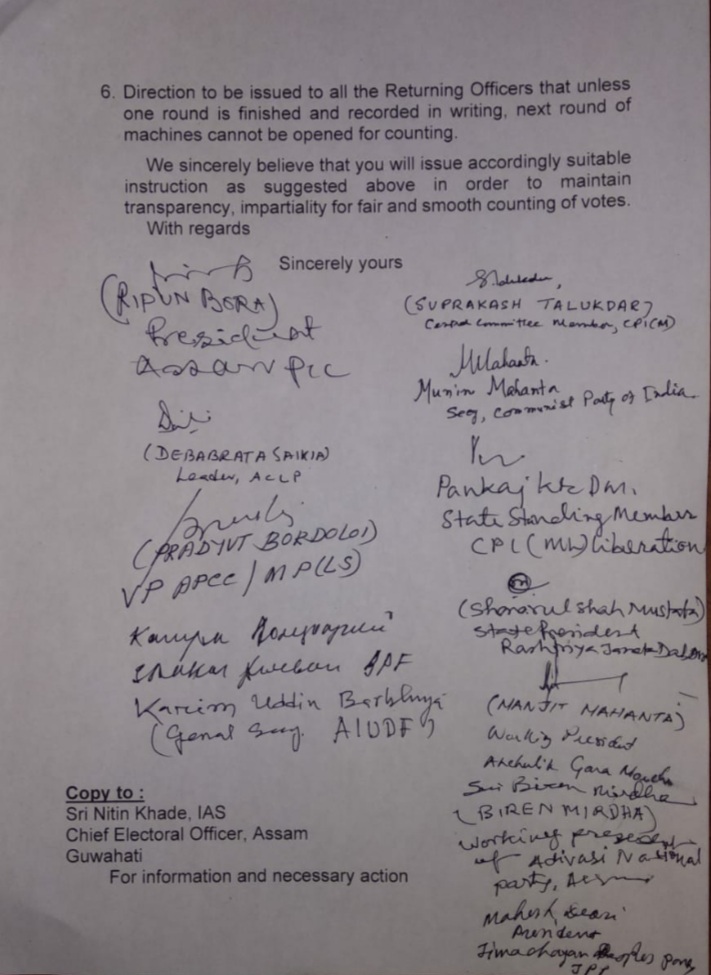 6. Direction to be issued to all the Returning Officers that unless
one round is finished and recorded in writing, next round of
machines cannot be opened for counting.
We sincerely believe that you will issue accordingly suitable
instruction as suggested above in order to maintain
transparency, impartiality for fair and smooth counting of votes.
With regards
Sincerely yours
(RIPUN BORA)
President
Assam PCC
(DEBABRATA SAIKIA)
Leader, ACLP
(PRADYUT BORDOLOI)
VP APCC / MP(LS)
BPF
Karim Uddin Barbhuiya
(Genal Secy. AIUDF)
(SUPRAKASH TALUKDAR)
Central Committee Member, CPI(M)
Munin Mahanta
Secy, Communist Party of India.
Pankaj Kr Das.
State Standing Member
CPI (ML) Liberation
(Shonarul Shah Mustafa)
State President
Rashtriya Janata Dal
(MANJIT MAHANTA)
Working President
Anchalik Gana Morcha
Sri Biren Mirdha
(BIREN MIRDHA)
Working president
of Adivasi National
party,
Mahesh
President
Jimochayan Peoples party
JPP
Copy to :
Sri Nitin Khade, IAS
Chief Electoral Officer, Assam
Guwahati
For information and necessary action